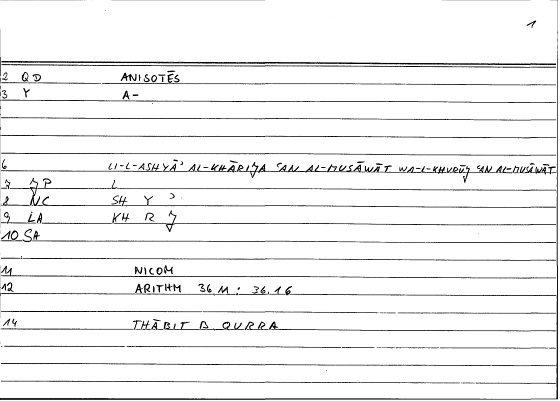 1
2 QD ANISOTĒS
3 Y A-
6 LI-L-ASHYĀʾ AL-KHĀRIJA ʿAN AL-MUSĀWĀT WA-L-KHURŪJ ʿAN AL-MUSĀWĀT
7 JP L
8 NC SH Y ʾ
9 LA KH R J
10 SA
11 NICOM
12 ARITHM 36.11 : 36.16
14 THĀBIT B. QURRA